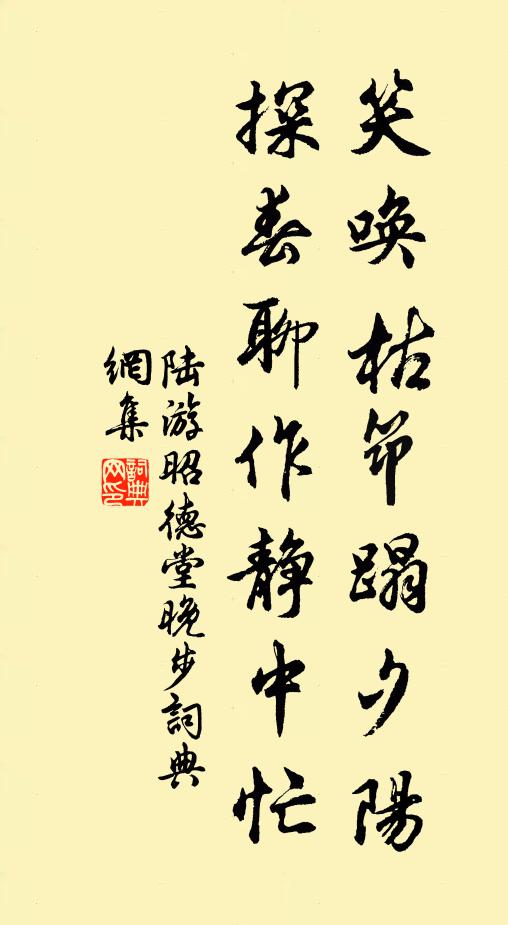 笑喚枯筇蹋夕陽
探春聊作静中忙
陆游昭德堂晚步詞典
網集
詞典
网印